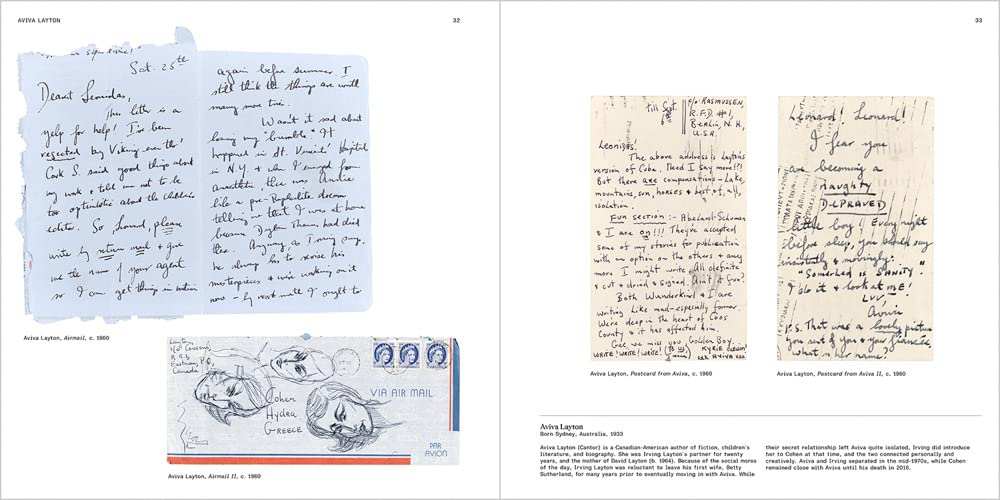 AVIVA LAYTON
32
Sat. 25th
Dearest Leonidas,
This letter is a
yelp for help! I've been
rejected by Viking even tho'
Cork S. said good things about
my work & told me not to be
too optimistic about the childrens
editor. So Leonard, please
write by return mail & give
me the name of your agent
so I can get things in motion
again before summer. I
still think the things are worth
many more tries.
Wasn't it sad about
losing my "bumble" It
happened in St. Vincents' Hospital
in N.Y. & when I emerged from
anaesthetic, there was Annie
like a pre-Raphaelite dream
telling me that I was at home
because Dylan Thomas had died
there. Anyway, as Irving says,
he always has to revise his
masterpieces & we're working on it
now - by next mail I ought to
Aviva Layton, Airmail, c. 1960
Layton,
Eastman, P.Q.
Canada
Cohen
Hydra
GREECE
VIA AIR MAIL
PAR
AVION
Aviva Layton, Airmail II, c. 1960
33
till Sept.
c/o RASMUSSEN,
R.F.D. #1,
Berlin, N.H.,
U.S.A.
Leonidas!
The above address is Layton's
version of Coba. Need I say more!?!
But there are compensations - Lake,
mountains, sun, horses & best of, all,
isolation.
FUN SECTION :- Abelard-Schuman
& I are on!!! They've accepted
some of my stories for publication
with an option on the others & any
more I might write. All definite
& cut & dried & signed. Ain't it fun?
Both Wunderkind & I are
writing like mad - especially former.
Were deep in the heart of Coos
County & it has affected him.
Gee, we miss you Golden Boy.
WRITE! WRITE! WRITE!
xxx AVIVA xxx
Aviva Layton, Postcard from Aviva, c. 1960
Leonard! Leonard!
I fear you
are becoming a
naughty
DEPRAVED
little boy! Every night
before sleep, you should say
insistently & movingly:
"Somerhed is SANITY"
I do it & look at ME!
LUV
Aviva
P.S. That was a lovely picture
you sent of you & your fiancée,
what is her name?
Aviva Layton, Postcard from Aviva II, c. 1960
Aviva Layton
Born Sydney, Australia, 1933
Aviva Layton (Cantor) is a Canadian-American author of fiction, children's
literature, and biography. She was Irving Layton's partner for twenty
years, and the mother of David Layton (b. 1964). Because of the social mores
of the day, Irving Layton was reluctant to leave his first wife, Betty
Sutherland, for many years prior to eventually moving in with Aviva. While
their secret relationship left Aviva quite isolated, Irving did introduce
her to Cohen at that time, and the two connected personally and
creatively. Aviva and Irving separated in the mid-1970s, while Cohen
remained close with Aviva until his death in 2016.